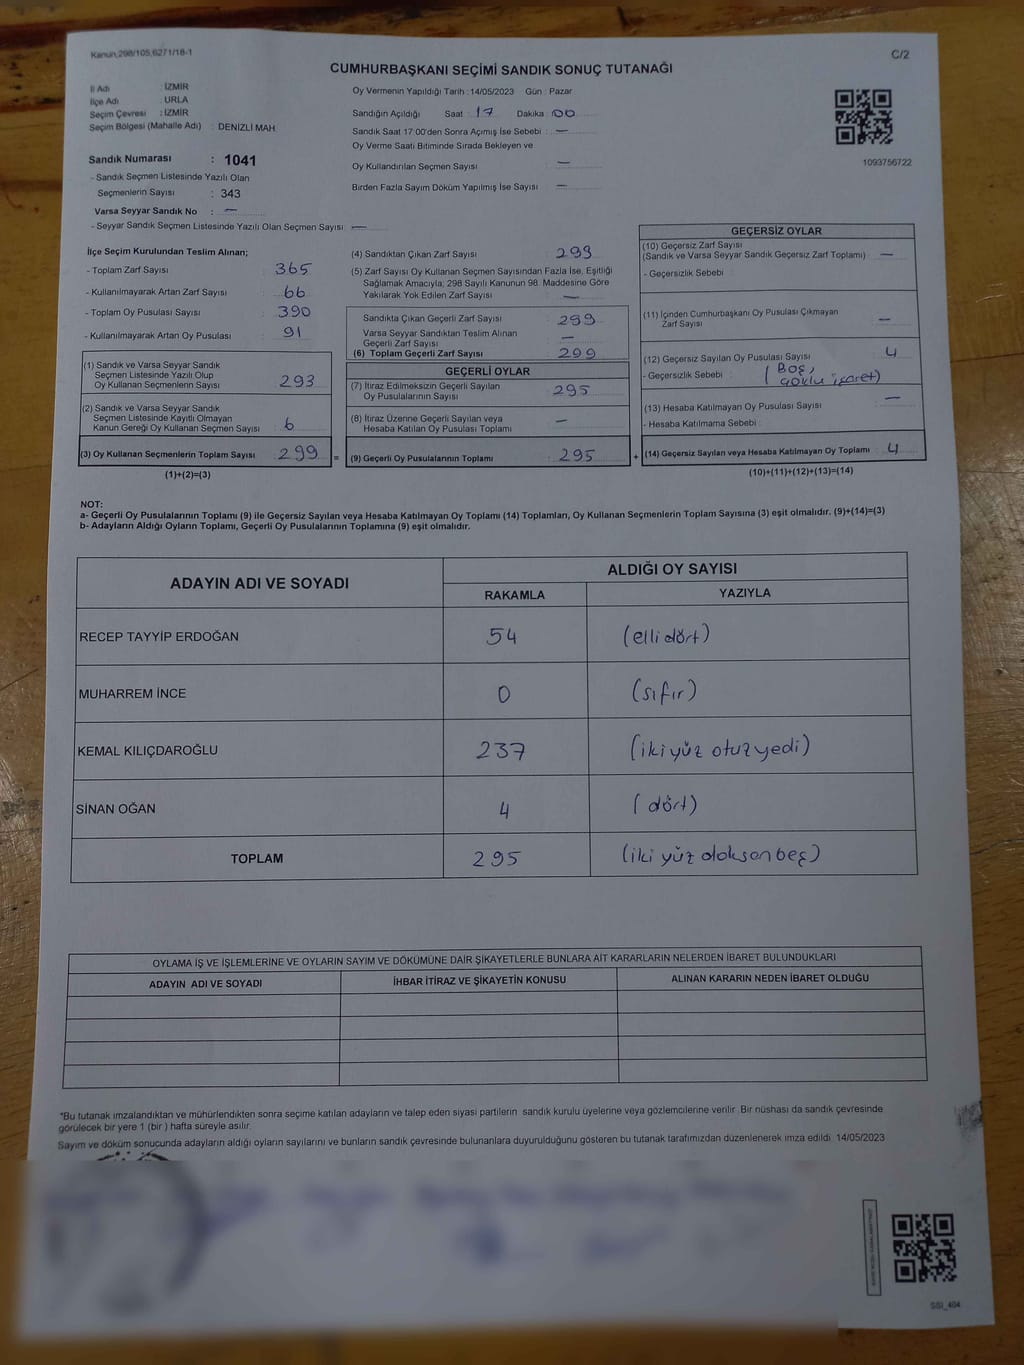 Kanun,298/105,6271/18-1
C/2
CUMHURBAŞKANI SEÇİMİ SANDIK SONUÇ TUTANAĞI
İl Adı : İZMİR
İlçe Adı : URLA
Seçim Çevresi : İZMİR
Seçim Bölgesi (Mahalle Adı) : DENİZLİ MAH.
Sandık Numarası : 1041
- Sandık Seçmen Listesinde Yazılı Olan
Seçmenlerin Sayısı : 343
Varsa Seyyar Sandık No : —
- Seyyar Sandık Seçmen Listesinde Yazılı Olan Seçmen Sayısı: —
Oy Vermenin Yapıldığı Tarih : 14/05/2023 Gün : Pazar
Sandığın Açıldığı Saat : 17 Dakika : 00
Sandık Saat 17:00'den Sonra Açımış İse Sebebi : —
Oy Verme Saati Bitiminde Sırada Bekleyen ve
Oy Kullandırılan Seçmen Sayısı : —
Birden Fazla Sayım Döküm Yapılmış İse Sayısı : —
1093756722
İlçe Seçim Kurulundan Teslim Alınan;
- Toplam Zarf Sayısı : 365
- Kullanılmayarak Artan Zarf Sayısı : 66
- Toplam Oy Pusulası Sayısı : 390
- Kullanılmayarak Artan Oy Pusulası : 91
(1) Sandık ve Varsa Seyyar Sandık
Seçmen Listesinde Yazılı Olup
Oy Kullanan Seçmenlerin Sayısı : 293
(2) Sandık ve Varsa Seyyar Sandık
Seçmen Listesinde Kayıtlı Olmayan
Kanun Gereği Oy Kullanan Seçmen Sayısı : 6
(3) Oy Kullanan Seçmenlerin Toplam Sayısı : 299 =
(1)+(2)=(3)
(4) Sandıktan Çıkan Zarf Sayısı : 299
(5) Zarf Sayısı Oy Kullanan Seçmen Sayısından Fazla İse, Eşitliği
Sağlamak Amacıyla; 298 Sayılı Kanunun 98. Maddesine Göre
Yakılarak Yok Edilen Zarf Sayısı : —
Sandıkta Çıkan Geçerli Zarf Sayısı : 299
Varsa Seyyar Sandıktan Teslim Alınan
Geçerli Zarf Sayısı : —
(6) Toplam Geçerli Zarf Sayısı : 299
GEÇERLİ OYLAR
(7) İtiraz Edilmeksizin Geçerli Sayılan
Oy Pusulalarının Sayısı : 295
(8) İtiraz Üzerine Geçerli Sayılan veya
Hesaba Katılan Oy Pusulası Toplamı : —
(9) Geçerli Oy Pusulalarının Toplamı : 295 +
GEÇERSİZ OYLAR
(10) Geçersiz Zarf Sayısı
(Sandık ve Varsa Seyyar Sandık Geçersiz Zarf Toplamı) : —
- Geçersizlik Sebebi :
(11) İçinden Cumhurbaşkanı Oy Pusulası Çıkmayan
Zarf Sayısı : —
(12) Geçersiz Sayılan Oy Pusulası Sayısı : 4
- Geçersizlik Sebebi : (Boş,
çoklu işaret)
(13) Hesaba Katılmayan Oy Pusulası Sayısı : —
- Hesaba Katılmama Sebebi :
(14) Geçersiz Sayılan veya Hesaba Katılmayan Oy Toplamı : 4
(10)+(11)+(12)+(13)=(14)
NOT:
a- Geçerli Oy Pusulalarının Toplamı (9) ile Geçersiz Sayılan veya Hesaba Katılmayan Oy Toplamı (14) Toplamları, Oy Kullanan Seçmenlerin Toplam Sayısına (3) eşit olmalıdır. (9)+(14)=(3)
b- Adayların Aldığı Oyların Toplamı, Geçerli Oy Pusulalarının Toplamına (9) eşit olmalıdır.
ADAYIN ADI VE SOYADI ALDIĞI OY SAYISI
RAKAMLA YAZIYLA
RECEP TAYYİP ERDOĞAN 54 (elli dört)
MUHARREM İNCE 0 (sıfır)
KEMAL KILIÇDAROĞLU 237 (iki yüz otuz yedi)
SİNAN OĞAN 4 (dört)
TOPLAM 295 (iki yüz doksan beş)
OYLAMA İŞ VE İŞLEMLERİNE VE OYLARIN SAYIM VE DÖKÜMÜNE DAİR ŞİKAYETLERLE BUNLARA AİT KARARLARIN NELERDEN İBARET BULUNDUKLARI
ADAYIN ADI VE SOYADI İHBAR İTİRAZ VE ŞİKAYETİN KONUSU ALINAN KARARIN NEDEN İBARET OLDUĞU
*Bu tutanak imzalandıktan ve mühürlendikten sonra seçime katılan adayların ve talep eden siyasi partilerin sandık kurulu üyelerine veya gözlemcilerine verilir. Bir nüshası da sandık çevresinde
görülecek bir yere 1 (bir ) hafta süreyle asılır.
Sayım ve döküm sonucunda adayların aldığı oyların sayılarını ve bunların sandık çevresinde bulunanlara duyurulduğunu gösteren bu tutanak tarafımızdan düzenlenerek imza edildi. 14/05/2023
SSI_404